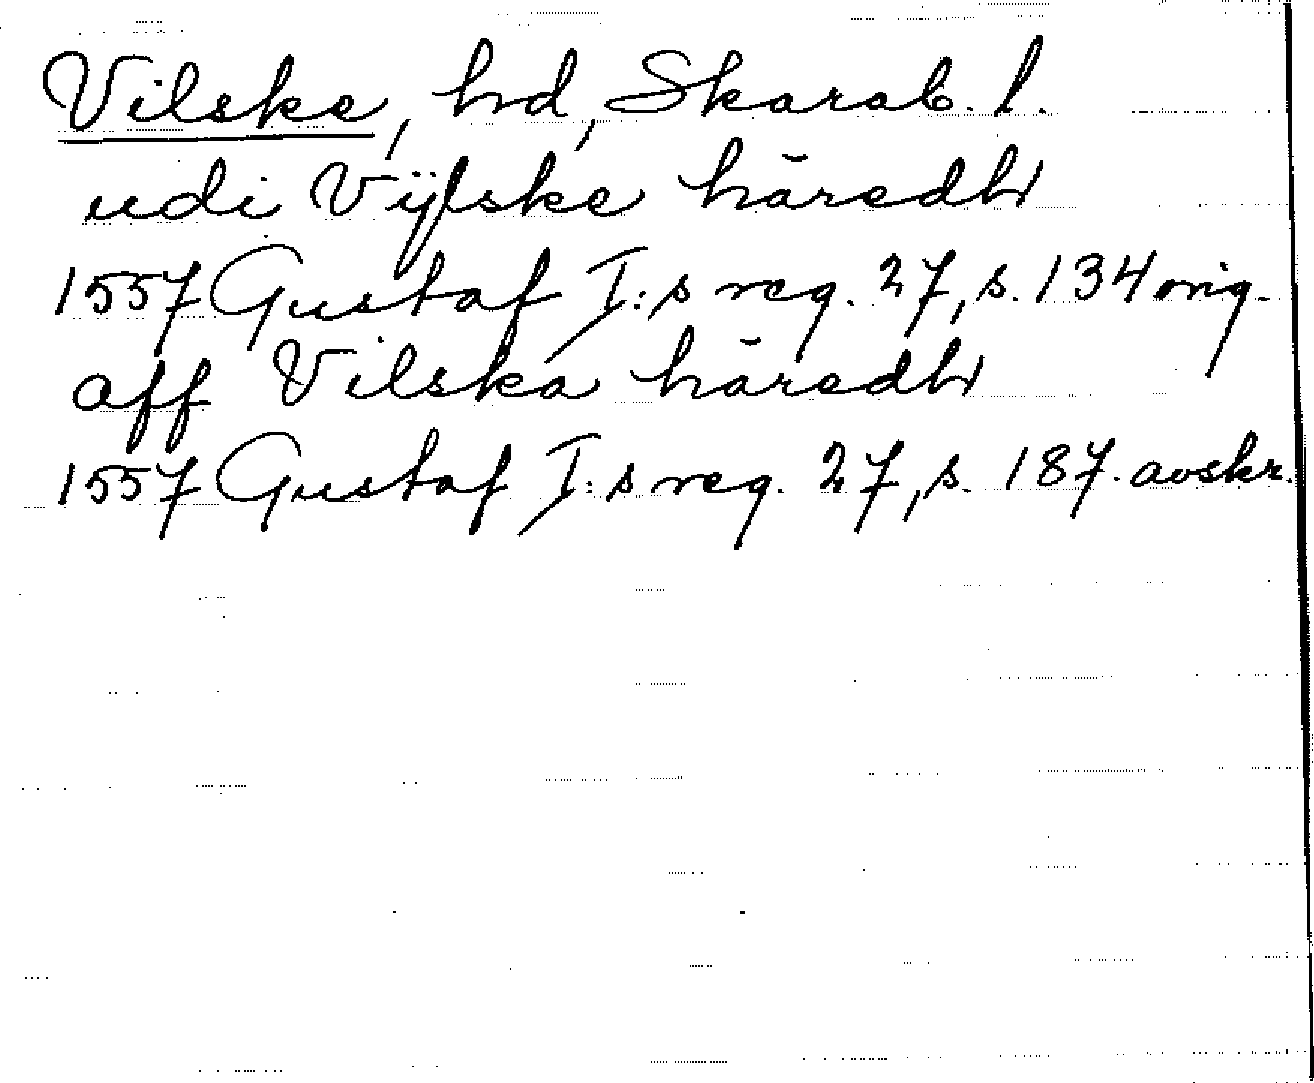 Vilske, hd, Skarab. l.
udi Vÿlske häredh
1557 Gustaf I:s reg. 27, s. 134 orig.
aff Vilska häredh
1557 Gustaf I:s reg. 27, s. 187. avskr.